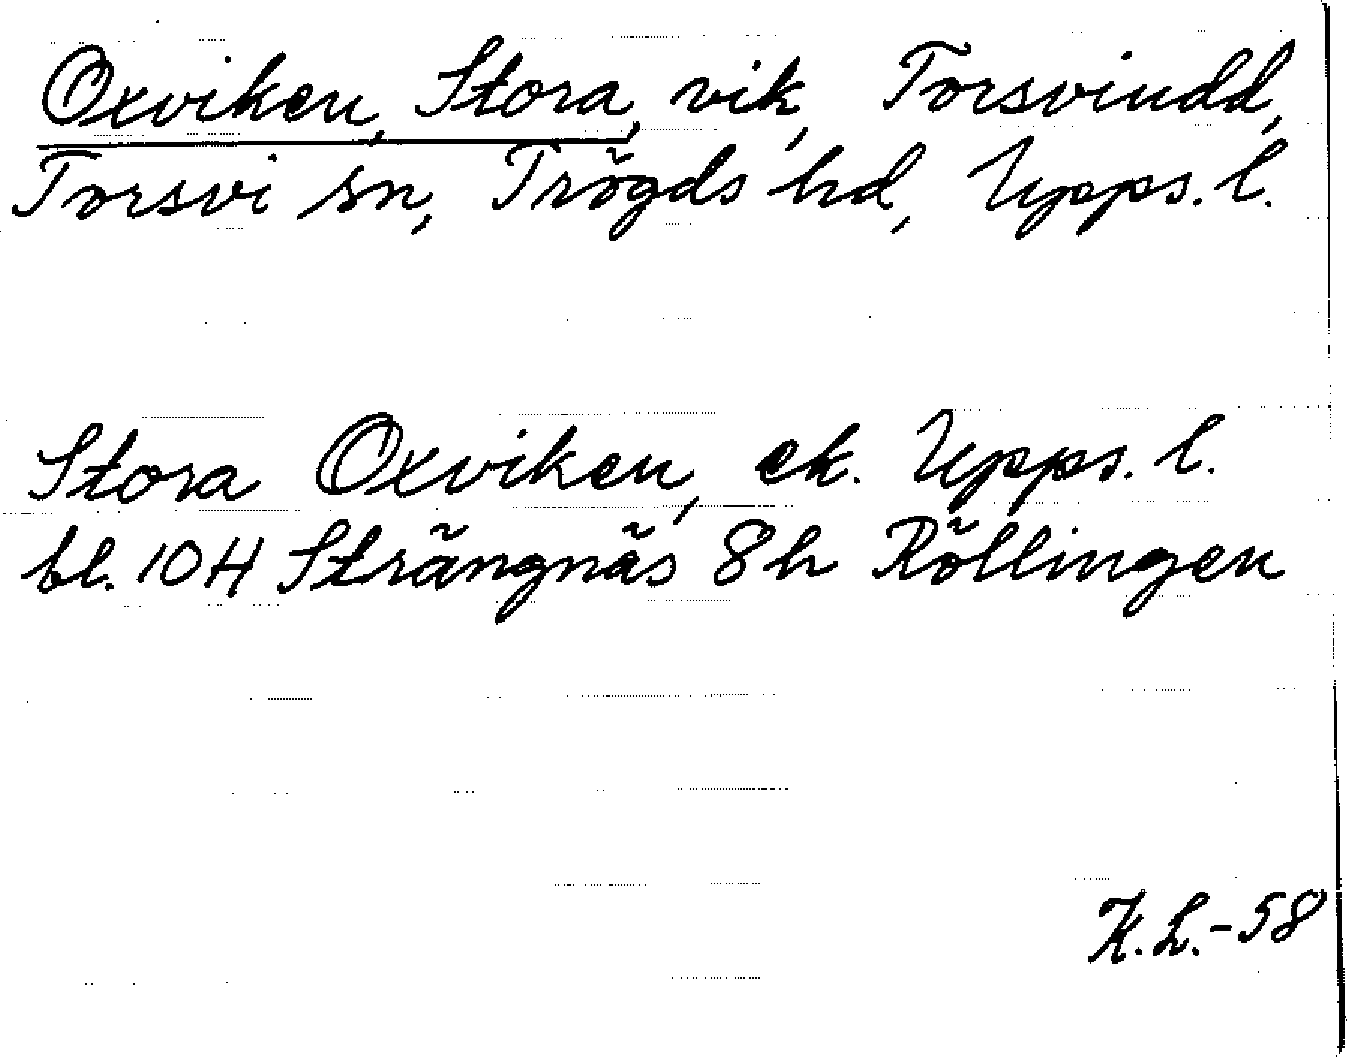 Oxviken, Stora, vik, Torsvindd,
Torsvi sn, Trögds hd, Upps. l.
Stora Oxviken, ek. Upps. l.
bl. 10H Strängnäs 8h Röllingen
K.L.-58